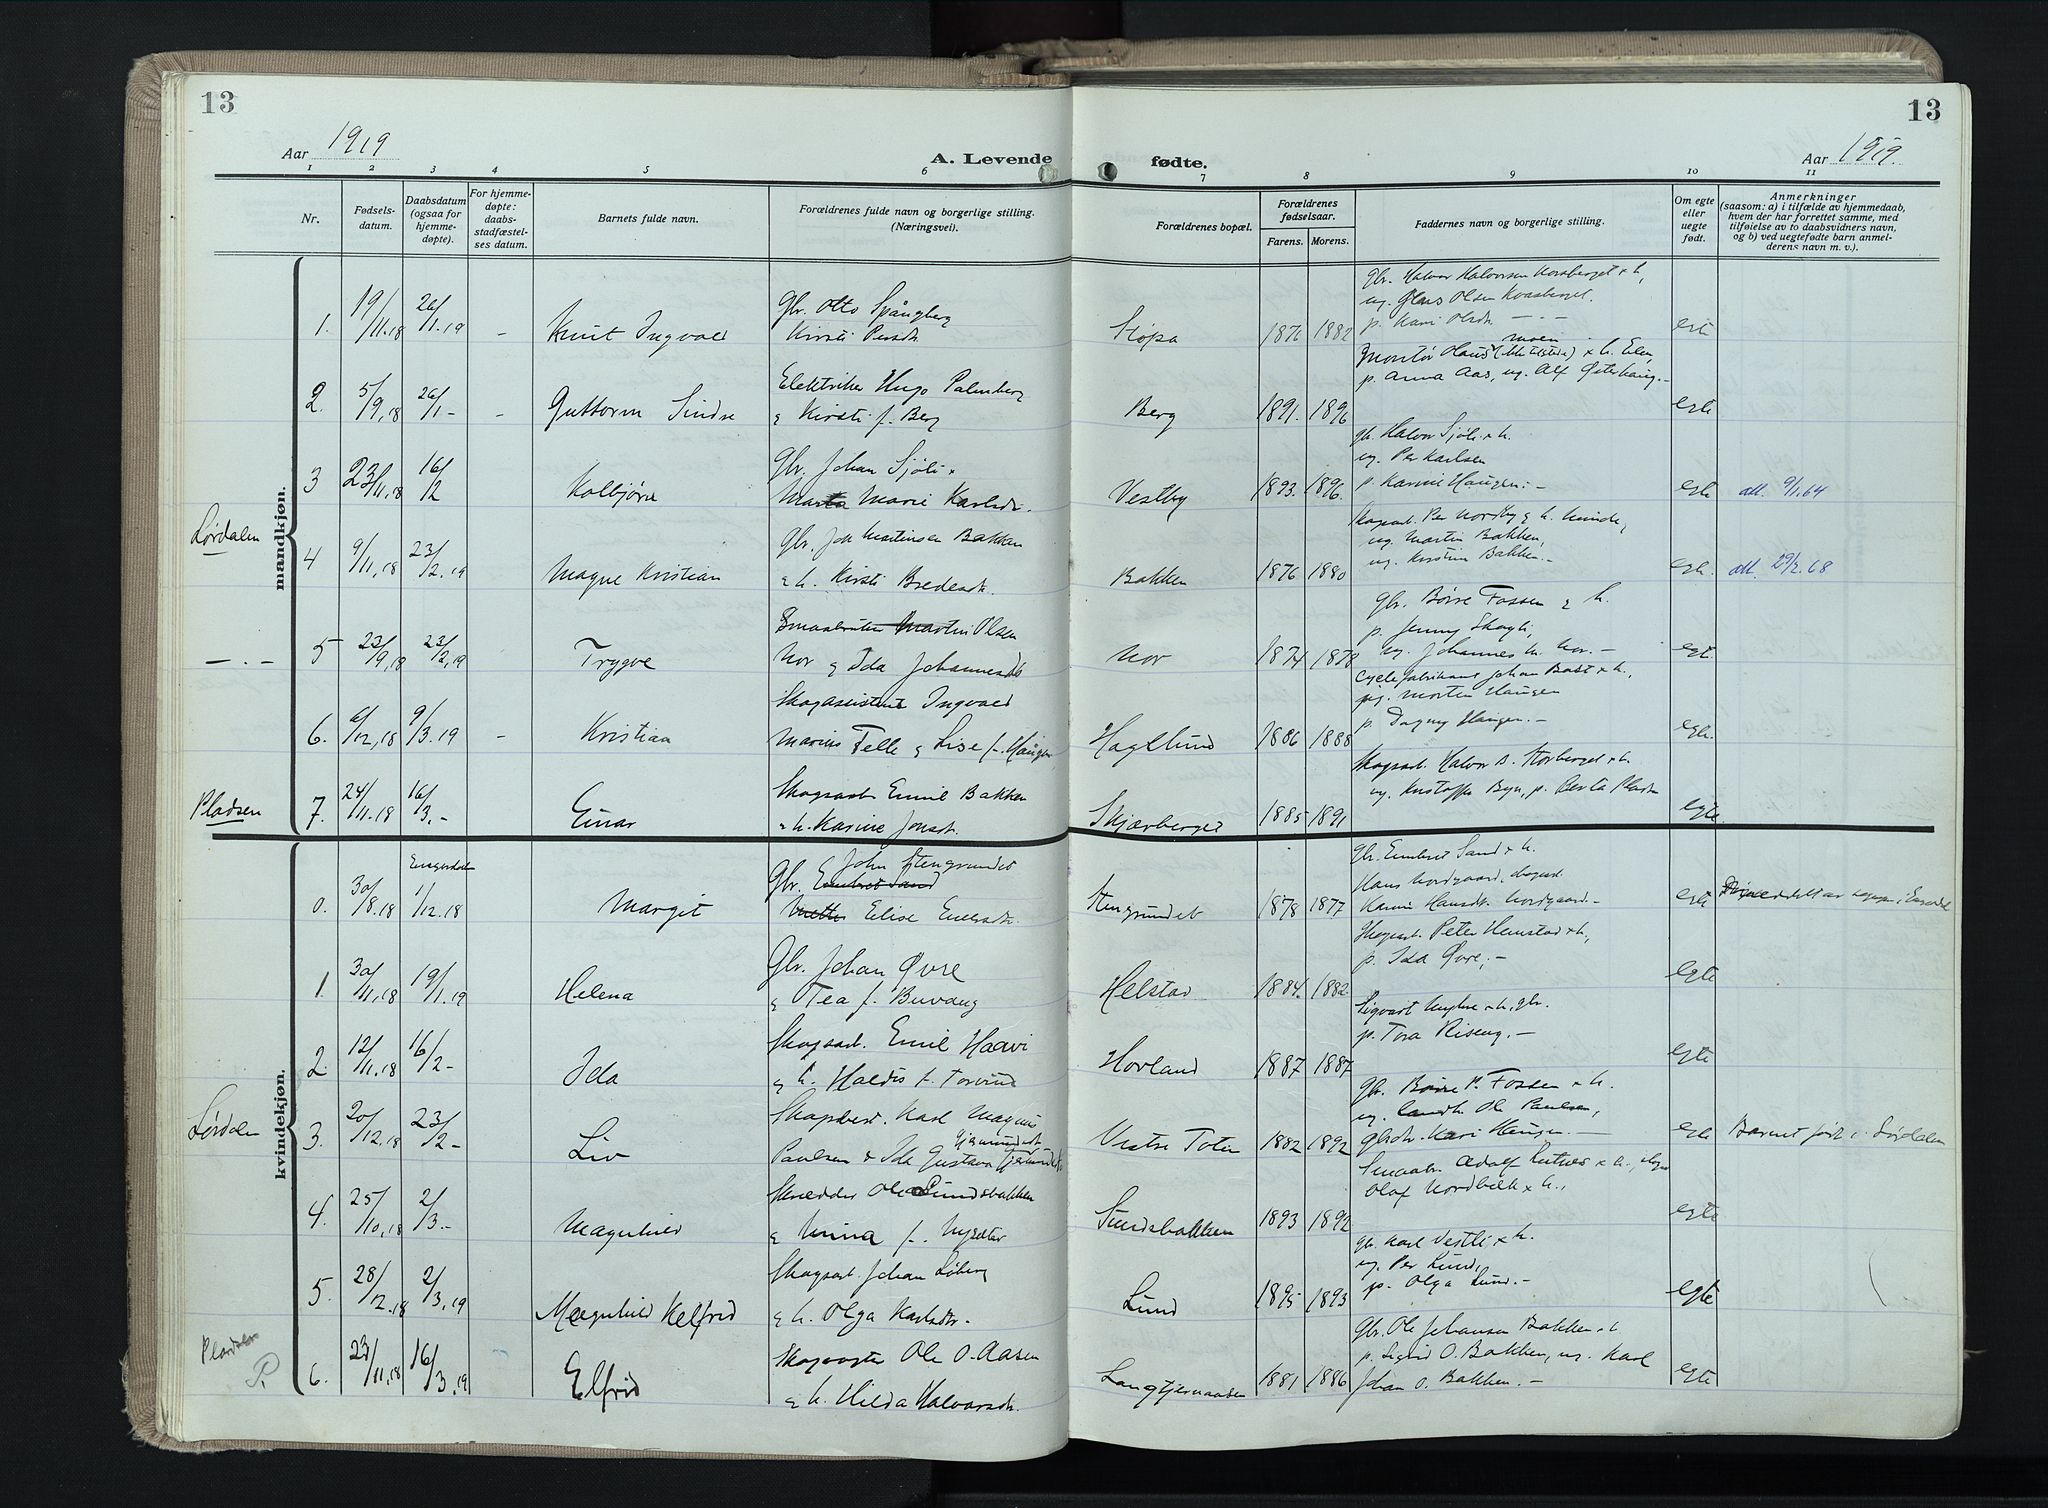 13
13
Aar 1919
A. Levende
fødte.
Aar 1919.
1 2 3 4 5 6 7 8 9 10 11
Nr.
Fødsels-
datum.
Daabsdatum
(ogsaa for
hjemme-
døpte).
For hjemme-
døpte:
daabs-
stadfæstel-
ses datum.
Barnets fulde navn.
Forældrenes fulde navn og borgerlige stilling.
(Næringsvei).
Forældrenes bopæl.
Forældrenes
fødselsaar.
Farens. Morens.
Faddernes navn og borgerlige stilling.
Om egte
eller
uegte
født.
Anmerkninger
(saasom: a) i tilfælde av hjemmedaab,
hvem der har forrettet samme, med
tilføielse av to daabsvidners navn,
og b) ved uegtefødte barn anmel-
derens navn m. v.).
mandkjøn.
1. 19/11.18 26/1.19 - Knut Ingvald
Gbr. Otto Spångberg
Kirsti Persdt.
1876 1882
Gbr. Halvor Halvorsen
p. Kari Olsdt.
egte
2. 5/9.18 26/1 - - Guttorm Sindre
Elektriker Hugo Palmberg
& Kirsti f. Berg
Berg 1891. 1896
p. Anna Aas, ug. Alf
egte
3 23/11.18 16/2 Kolbjørn
Gbr. Johan Sjöli &
Marie Karlsdt.
Vestby 1893. 1896.
gb. Halvor Sjöli & h.
ug. Per Karlsen
p. Karine Haugen. -
egte att. 9/1.64
Lørdalen
4 9/11.18 23/2.19 Magne Kristian
Gbr. Joh Martinsen Bakken
& h. Kirsti Bredesdt.
Bakken 1876 1880
Skogsarb. Per Nordby & h.
ug. Martin Bakken,
ug. Kirstine Bakken. -
egte. att. 29/2.68
- . - 5 23/9.18 23/2.19 Trygve
Smaabruker Martin Olsen
Nor & Ida Johannesdt
Nor 1874 1878
gbr. Børre Fossen & h.
p. Jenny Skogli,
ug. Johannes M. Nor. -
egt.
6. 6/12.18 9/3.19 - Kristian
Skogassistent Ingvald
Marius Telle & Lise f. Haugen
Haglund 1886 1888
Cyclefabrikant Johan Bast & h.,
Morten Haugen
p. Dagny Haugen. -
egte.
Pladsen
7. 24/11.18 16/3. - Einar
Skogsarb Emil Bakken
& h. Karine Jonsdt.
Skjærberget 1885 1891
Skogsarb. Halvor B. Storberget & h.
egte.
kvindekjøn.
0. 30/8.18 1/12.18 Margit
John Stengrundet
Gbr. Embret Sand
Elise Embretsdt.
Stengrundet 1878 1877
Gbr. Embret Sand & h.
Hans Nordgaard,
Karine Hansdt. Nordgaard -
egte
1. 30/11.18 19/1.19 Helena
Gbr. Johan Øvre
& Tea f. Buvang
Helstad 1884. 1882
Skogsarb. Peter Hemstad & h.,
p. Ida Øvre. -
egte
2. 12/11.18 16/2 - Ida
Skogsarb. Emil Haavi
& h. Haldis f.
Hovland 1887 1887
Sigvart Myhre & h., gbr.
p. Tora Riseng. -
egte
Lørdalen
3. 20/12.18 23/2 - Liv
Karl Magnus
Paulsen & Ida Gustava
Vestre Toten 1882 1892
gbr. Børre P. Fossen & h.
ug. landh. Ole Paulsen,
gbrdtr. Kari Haugen. -
egte Barnet født i Lørdalen
4. 25/10.18 2/3. - Magnhild
Skrædder Ole Sundsbakken
& Minna f. Nysæter
Sundsbakken 1893 1892
Smaabr. Adolf & h.,
Olaf Nordbæk & h.,
egte
5. 28/12.18 2/3.19 Magnhild Kelfrid
Skogsarb. Johan Löberg
& h. Olga Karlsdtr.
Lund 1895 1893
gbr. Karl Vestli & h.
ug. Per Lund,
p. Olga Lund. -
egte
Pladsen
P.
6. 23/11.18 16/3.19 Elfrid
Skogvogter Ole O. Aasen
& h. Hilda Halvorsdt.
Langtjernaasen 1881 1886
Gbr. Ole Johansen Bakken & h.
p. Sigrid O. Bakken, ug. Karl
Johan O. Bakken. -
egte